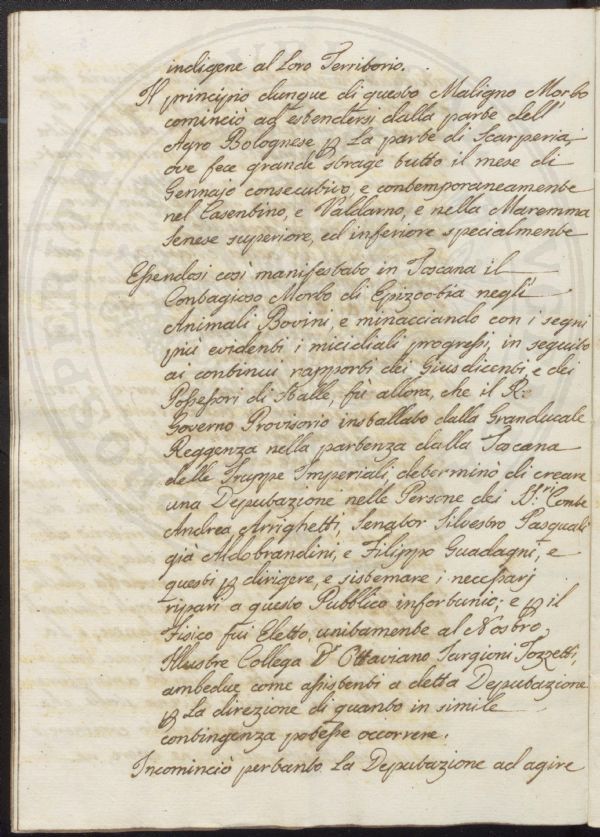 indigene al Loro Territorio.
Il principio dunque di questo Maligno Morbo
cominciò ad estendersi dalla parte dell'
Agro Bolognese p La parte di Scarperia,
ove fece grande strage tutto il mese di
Gennajo consecutivo, e contemporaneamente
nel Casentino, e Valdarno, e nella Maremma
Senese superiore, ed inferiore specialmente
Essendosi così manifestato in Toscana il
Contagioso Morbo di Epizootia negli
Animali Bovini, e minacciando con i segni
più evidenti i micidiali progressi, in seguito
ai continui rapporti dei Giusdicenti, e dei
Possessori di Stalle, fù allora, che il R.
Governo Provisorio installato dalla Granducale
Reggenza nella partenza dalla Toscana
delle Truppe Imperiali, determinò di creare
una Deputazione nelle Persone dei SS.ri Conte
Andrea Arrighetti, Senator Silvestro Pasquali
già Aldobrandini, e Filippo Guadagni, e
questi p dirigere, e sistemare i necessarj
ripari a questo Pubblico infortunio; e p il
Fisico fui Eletto, unitamente al Nostro
Illustre Collega Dr Ottaviano Targioni Tozzetti,
ambedue come assistenti a detta Deputazione
p La direzione di quanto in simile
contingenza potesse occorrere.
Incominciò pertanto La Deputazione ad agire